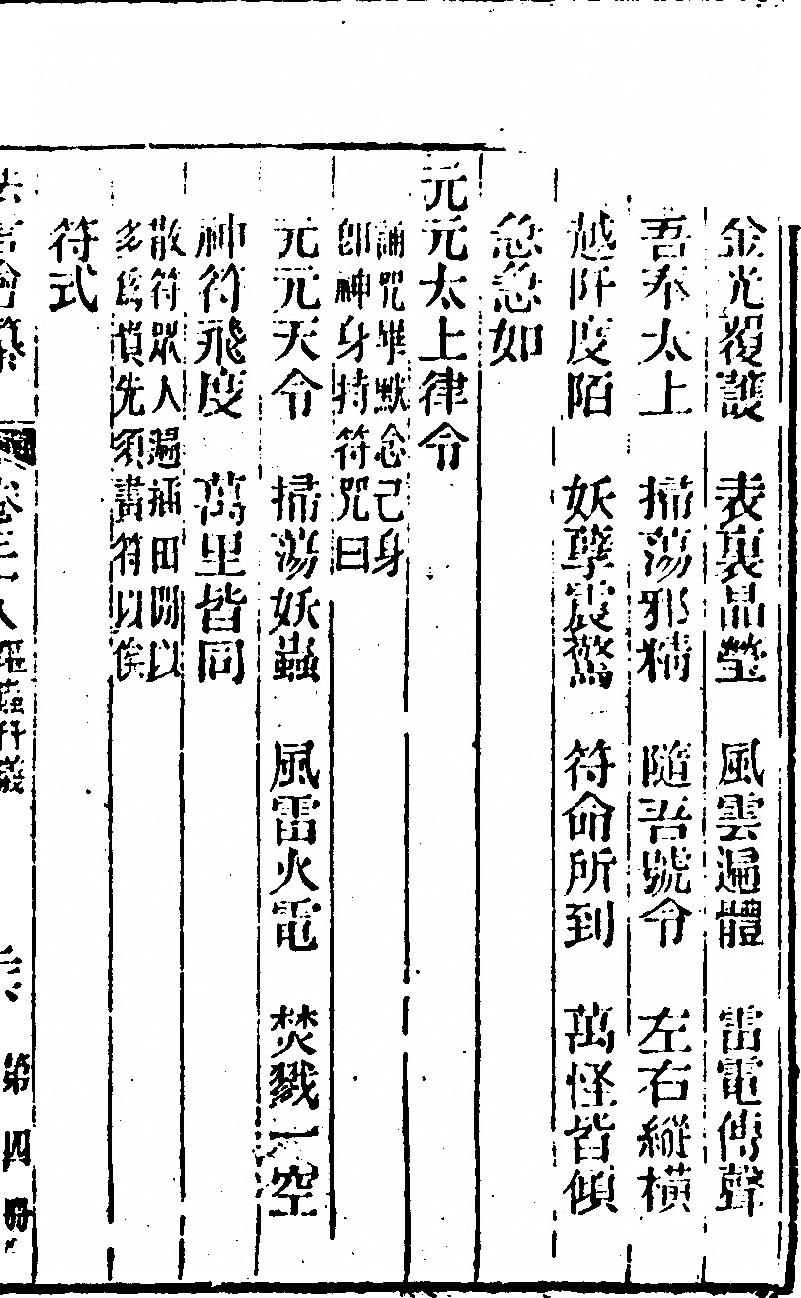 金光覆護　表裏晶瑩　風雲遍體　雷電傳聲
吾奉太上　掃蕩邪精　隨吾號令　左右縱橫
越阡度陌　妖孽震驚　符命所到　萬怪皆傾
急急如
元元太上律令
誦咒畢默念己身
卽神身持符咒曰
元元天令　掃蕩妖蟲　風雷火電　焚戮一空
神符飛度　萬里皆同
散符眾人遍插田間以
多爲愼先須書符以俟
符式
法言會纂　卷三十八　驅蝗科儀　六　第四冊